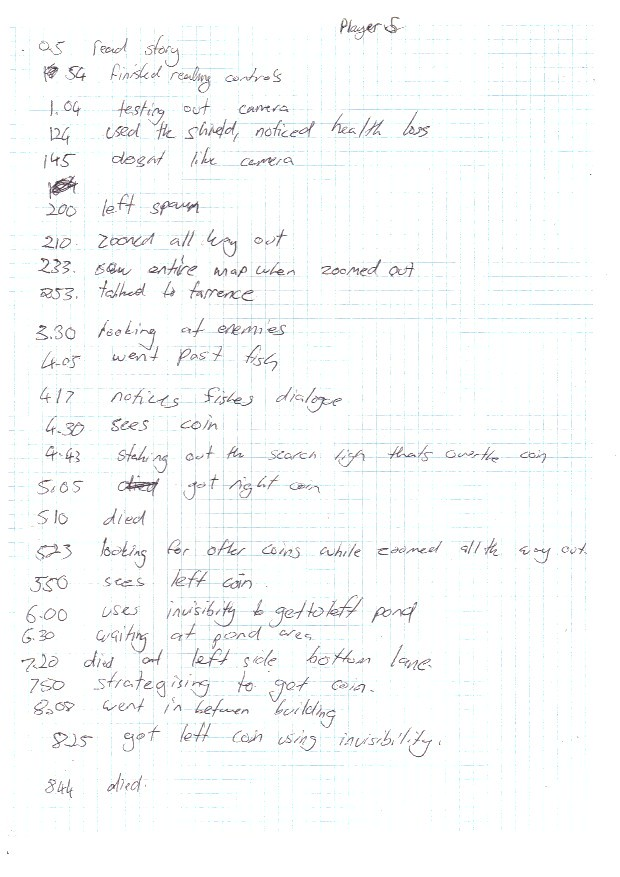 Player 5
0.5 read story
54 finished reading controls
1.04 testing out camera
124 used the shield, noticed health loss
145 doesnt like camera
200 left spawn
210. zoomed all way out
233. saw entire map when zoomed out
253. talked to tarrence
3.30 looking at enemies
4.05 went past fish
417 notices fishes dialogue
4.30 sees coin
4.43 staking out the search ligh thats over the coin
5.05 got right coin
510 died
523 looking for other coins while zoomed all the way out.
550 sees left coin.
6.00 uses invisibity to get to left pond
6.30 waiting at pond area
7.20 died at left side bottom lane.
750 strategising to get coin.
8.08 went in between building
825 got left coin using invisibility.
844 died.